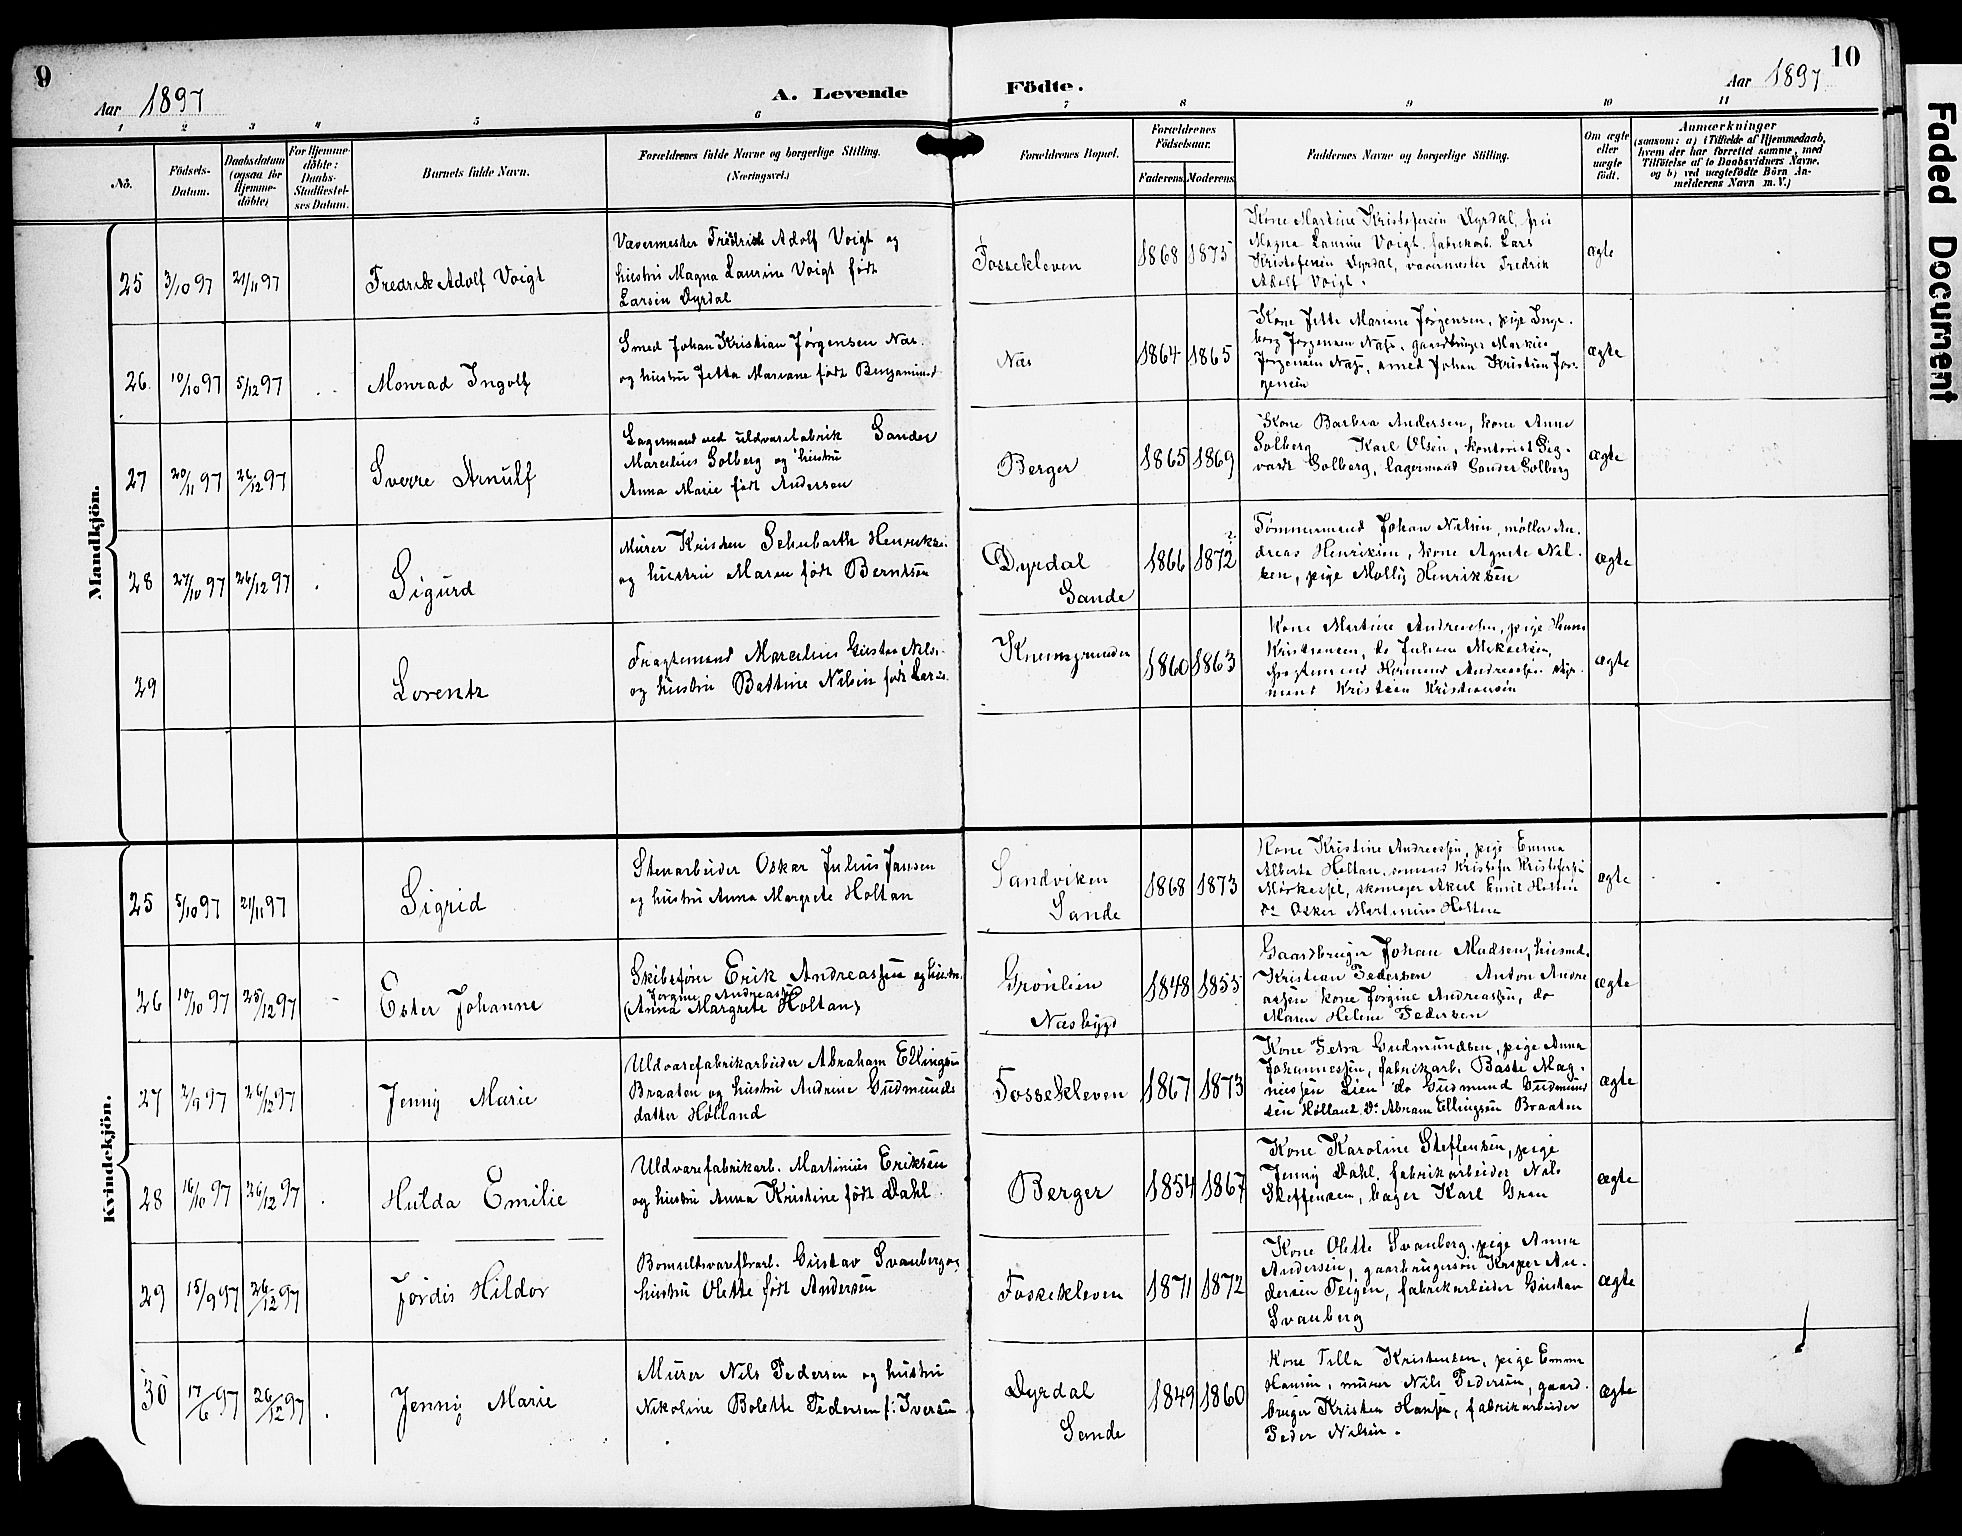 9
Aar 1897
A. Levende
Födte.
Aar 1897
10
1 2 3 4 5 6 7 8 9 10 11
No.
Födsels-
Datum.
Daabsdatum
(ogsaa for
Hjemme-
döbte)
For Hjemme-
döbte:
Daabs-
Stadfæstel-
ses Datum.
Barnets fulde Navn.
Forældrenes fulde Navne og borgerlige Stilling.
(Næringsvei.)
Forældrenes Bopæl.
Forældrenes
Födselsaar.
Faderens. Moderens.
Faddernes Navne og borgerlige Stilling.
Om ægte
eller
uægte
født.
Anmærkninger
(saasom: a) i Tilfælde af Hjemmedaab,
hvem der har forrettet samme, med
Tilföielse af to Daabsvidners Navne,
og b) ved uægtefödte Börn An-
melderens Navn m. V.)
Mandkjön.
25 3/10 97 21/11 97
Fredrik Adolf Voigt
Vævermester Fredrik Adolf Voigt og
hustru Magna Laurine Voigt født
Larsen Dyrdal
Fossekleven
1868 1875
Kone Martine Kristofersen Dyrdal, fru
Magna Laurine Voigt, fabrikarb. Lars
Kristofersen Dyrdal, vævermester Fredrik
Adolf Voigt.
ægte
26. 10/10 97 5/12 97
Monrad Ingolf
Smed Johan Kristian Jørgensen Næs
og hustru Jetta Mariane født Benjamins
Næs
1864 1865
Kone Jette Mariane Jørgensen, pige Inge-
borg Jørgensen Næss, gaardbruger Markus
Jørgensen Næss, smed Johan Kristian Jør-
gensen
ægte
27 20/11 97 26/12 97
Sverre Arnulf
Lagermand ved uldvarefabrik Sander
Marcelius Solberg og hustru
Anna Marie født Andersen
Berger
1865 1869
Kone Barbra Andersen, kone Anne
Solberg Karl Olsen, kontorist Sig-
vardt Solberg, lagermand Sander Solberg
ægte
28 27/10 97 26/12 97
Sigurd
Murer Kristen Schubarth Henrikse.
og hustru Maren født Berntsen
Dyrdal
Sande
1866 1872
?
Tømmermand Johan Nilsen, møller An-
dreas Henriksen, kone Agnete Nil-
sen, pige Molly Henriksen
ægte
29
Lorentz
Fragtemand Marcelius Gustav Nils.
og hustru Battine Nilsen født Lars.
1860 1863
Kone Martine Andreasen, pige
Kristiansen, do Juliane Mikaelsen,
fragtemand Herman Andreassen
Kristian Kristiansen
ægte
Kvindekjön.
25 5/10 97 21/11 97
Sigrid
Stenarbeider Oskar Julius Jansen
og hustru Anna Margrete Holtan
Sandviken
Sande
1868 1873
Kone Kristine Andreassen, pige Emma
Alberta Holtan, sømand Kristofer Kristofersen
skomager Aksel Emil Holten
do Osker Martinius Holten
ægte
26 10/10 97 25/12 97
Ester Johanne
Skibsfører Erik Andreassen og hustru
Jørgine Andreassen
(Anna Margrete Holtan)
Grønlien
Næsbygd
1848 1855
Gaardbruger Johan Madsen, husmd.
Kristian Pedersen Anton Andre
assen kone Jørgine Andreassen, do
Maren Helene Pedersen
ægte
27 2/9 97 26/12 97
Jenny Marie
Uldvarefabrikarbeider Abraham Ellingsen
Braaten og hustru Andrine Gudmunds
datter Hølland
Fossekleven
1867 1873
Kone Petra Gudmundsen, pige Anna
Johannessen, fabrikarb. Baste Mag-
nussen Lien do Gudmund Gudmund
sen Hølland, do Abram Ellingsen Braaten
ægte
28 16/10 97 26/12 97
Hulda Emilie
Uldvarefabrikarb. Martinius Eriksen
og hustru Anna Kristine født Dahl
Berger
1854 1867
Kone Karoline Steffensen, pige
Jenny Dahl, fabrikarbeider Nils
Steffensen, bager Karl Gran
ægte
29 15/9 97 26/12 97
Jørdis Hildor
Bomuldsvarefbrarb. Gustav Svanberg og
hustru Olette født Andersen
Fossekleven
1871 1872
Kone Olette Svanberg, pige Anna
Andersen, gaardbrugersøn Kasper An-
dersen Teigen, fabrikarbeider Gustav
Svanberg
ægte
30 17/6 97 26/12 97
Jenny Marie
Murer Nils Pedersen og hustru
Nikoline Bolette Pedersen f: Iversen
Dyrdal
Sande
1849 1860
Kone Tilla Kristensen, pige Emma
Hansen, murer Nils Pedersen, gaard-
bruger Kristen Hansen, fabrikarbeider
Peder Nilsen.
ægte
Faded Document